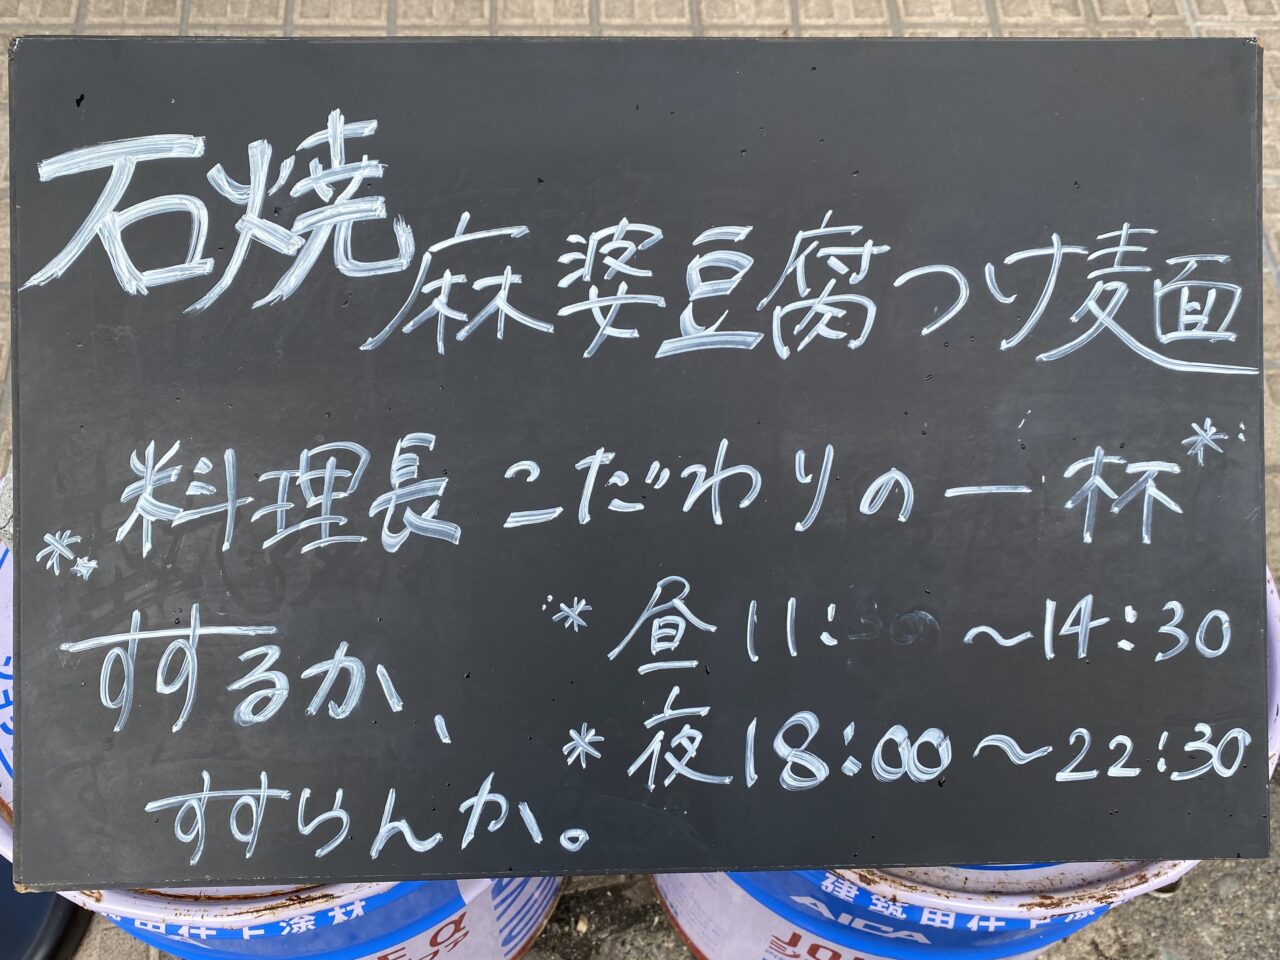 石焼 麻婆豆腐つけ麺
料理長 こだわりの一杯
すするか、
すすらんか。
昼 11: ～14:30
夜 18:00～22:30
建築用仕上塗材
AICA
α